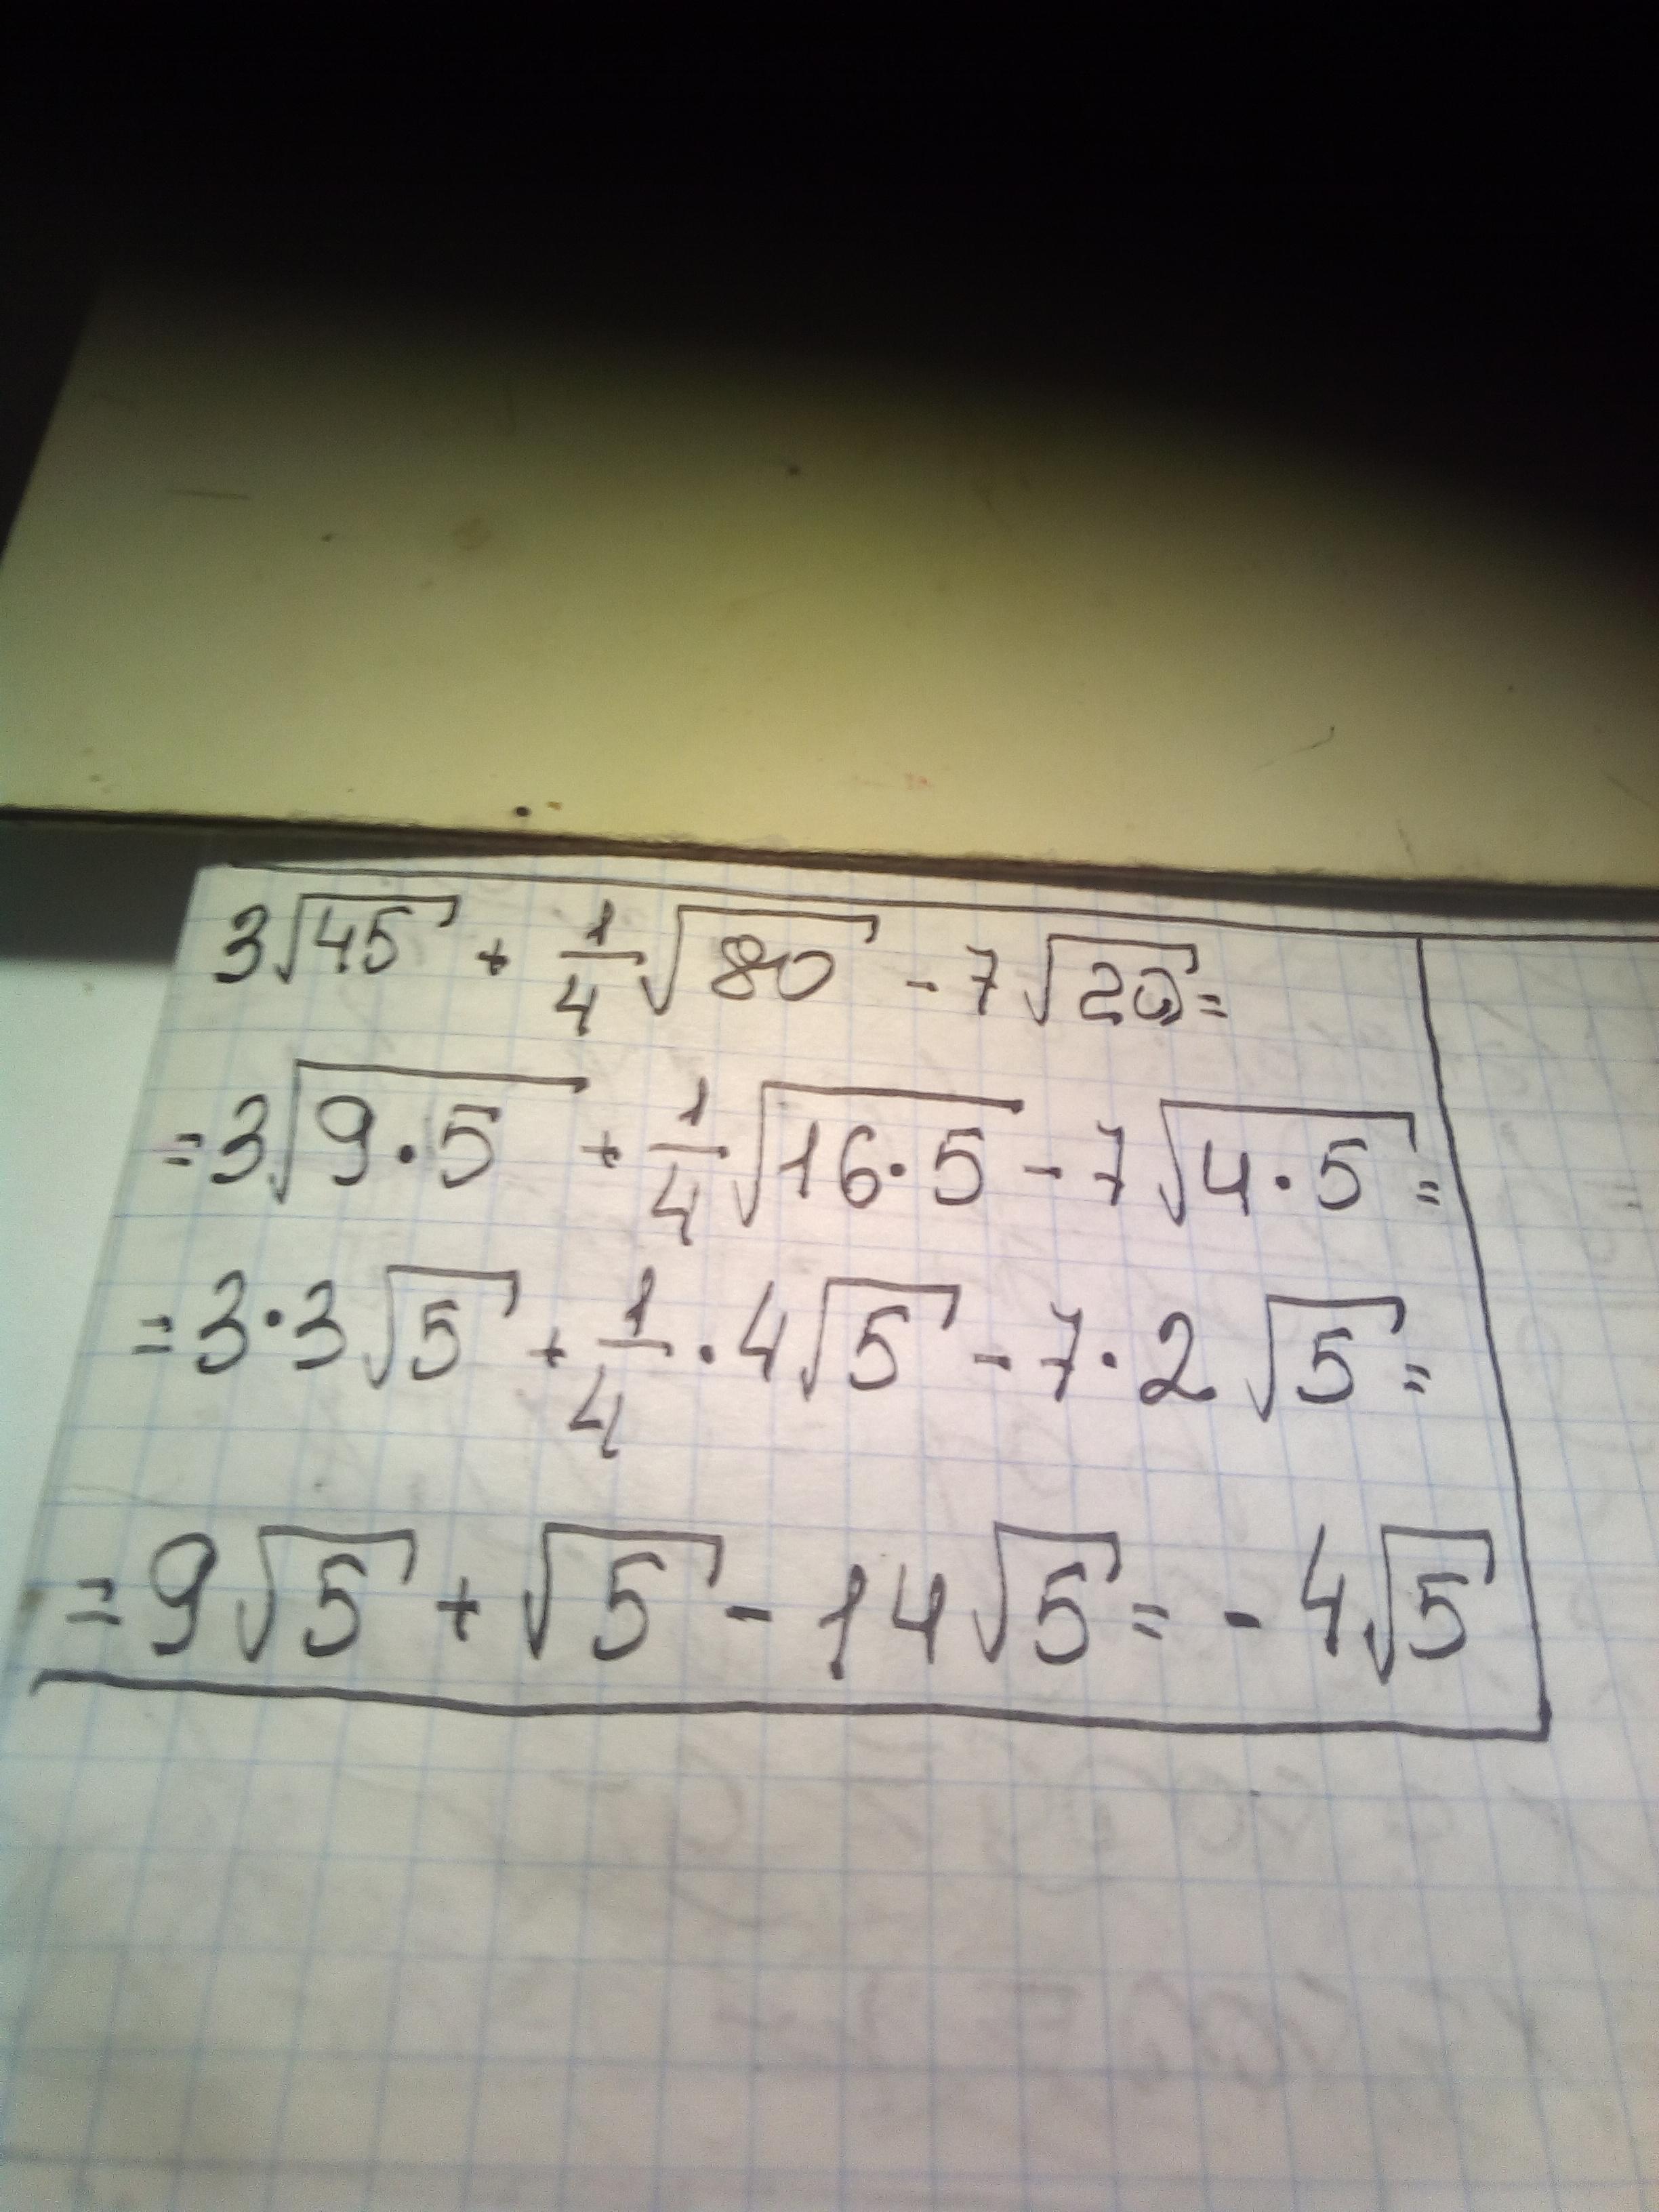 3√45 + 1/4 √80 - 7√20 =
= 3√9·5 + 1/4 √16·5 - 7√4·5 =
= 3·3√5 + 1/4 · 4√5 - 7·2√5 =
= 9√5 + √5 - 14√5 = - 4√5